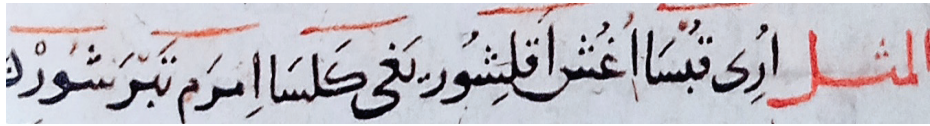 المثل اُرِى قُبْسَا اَغُش اَقلِشُور يَغى كَلسَا اِمرَم تَبْرَشُورْكَ